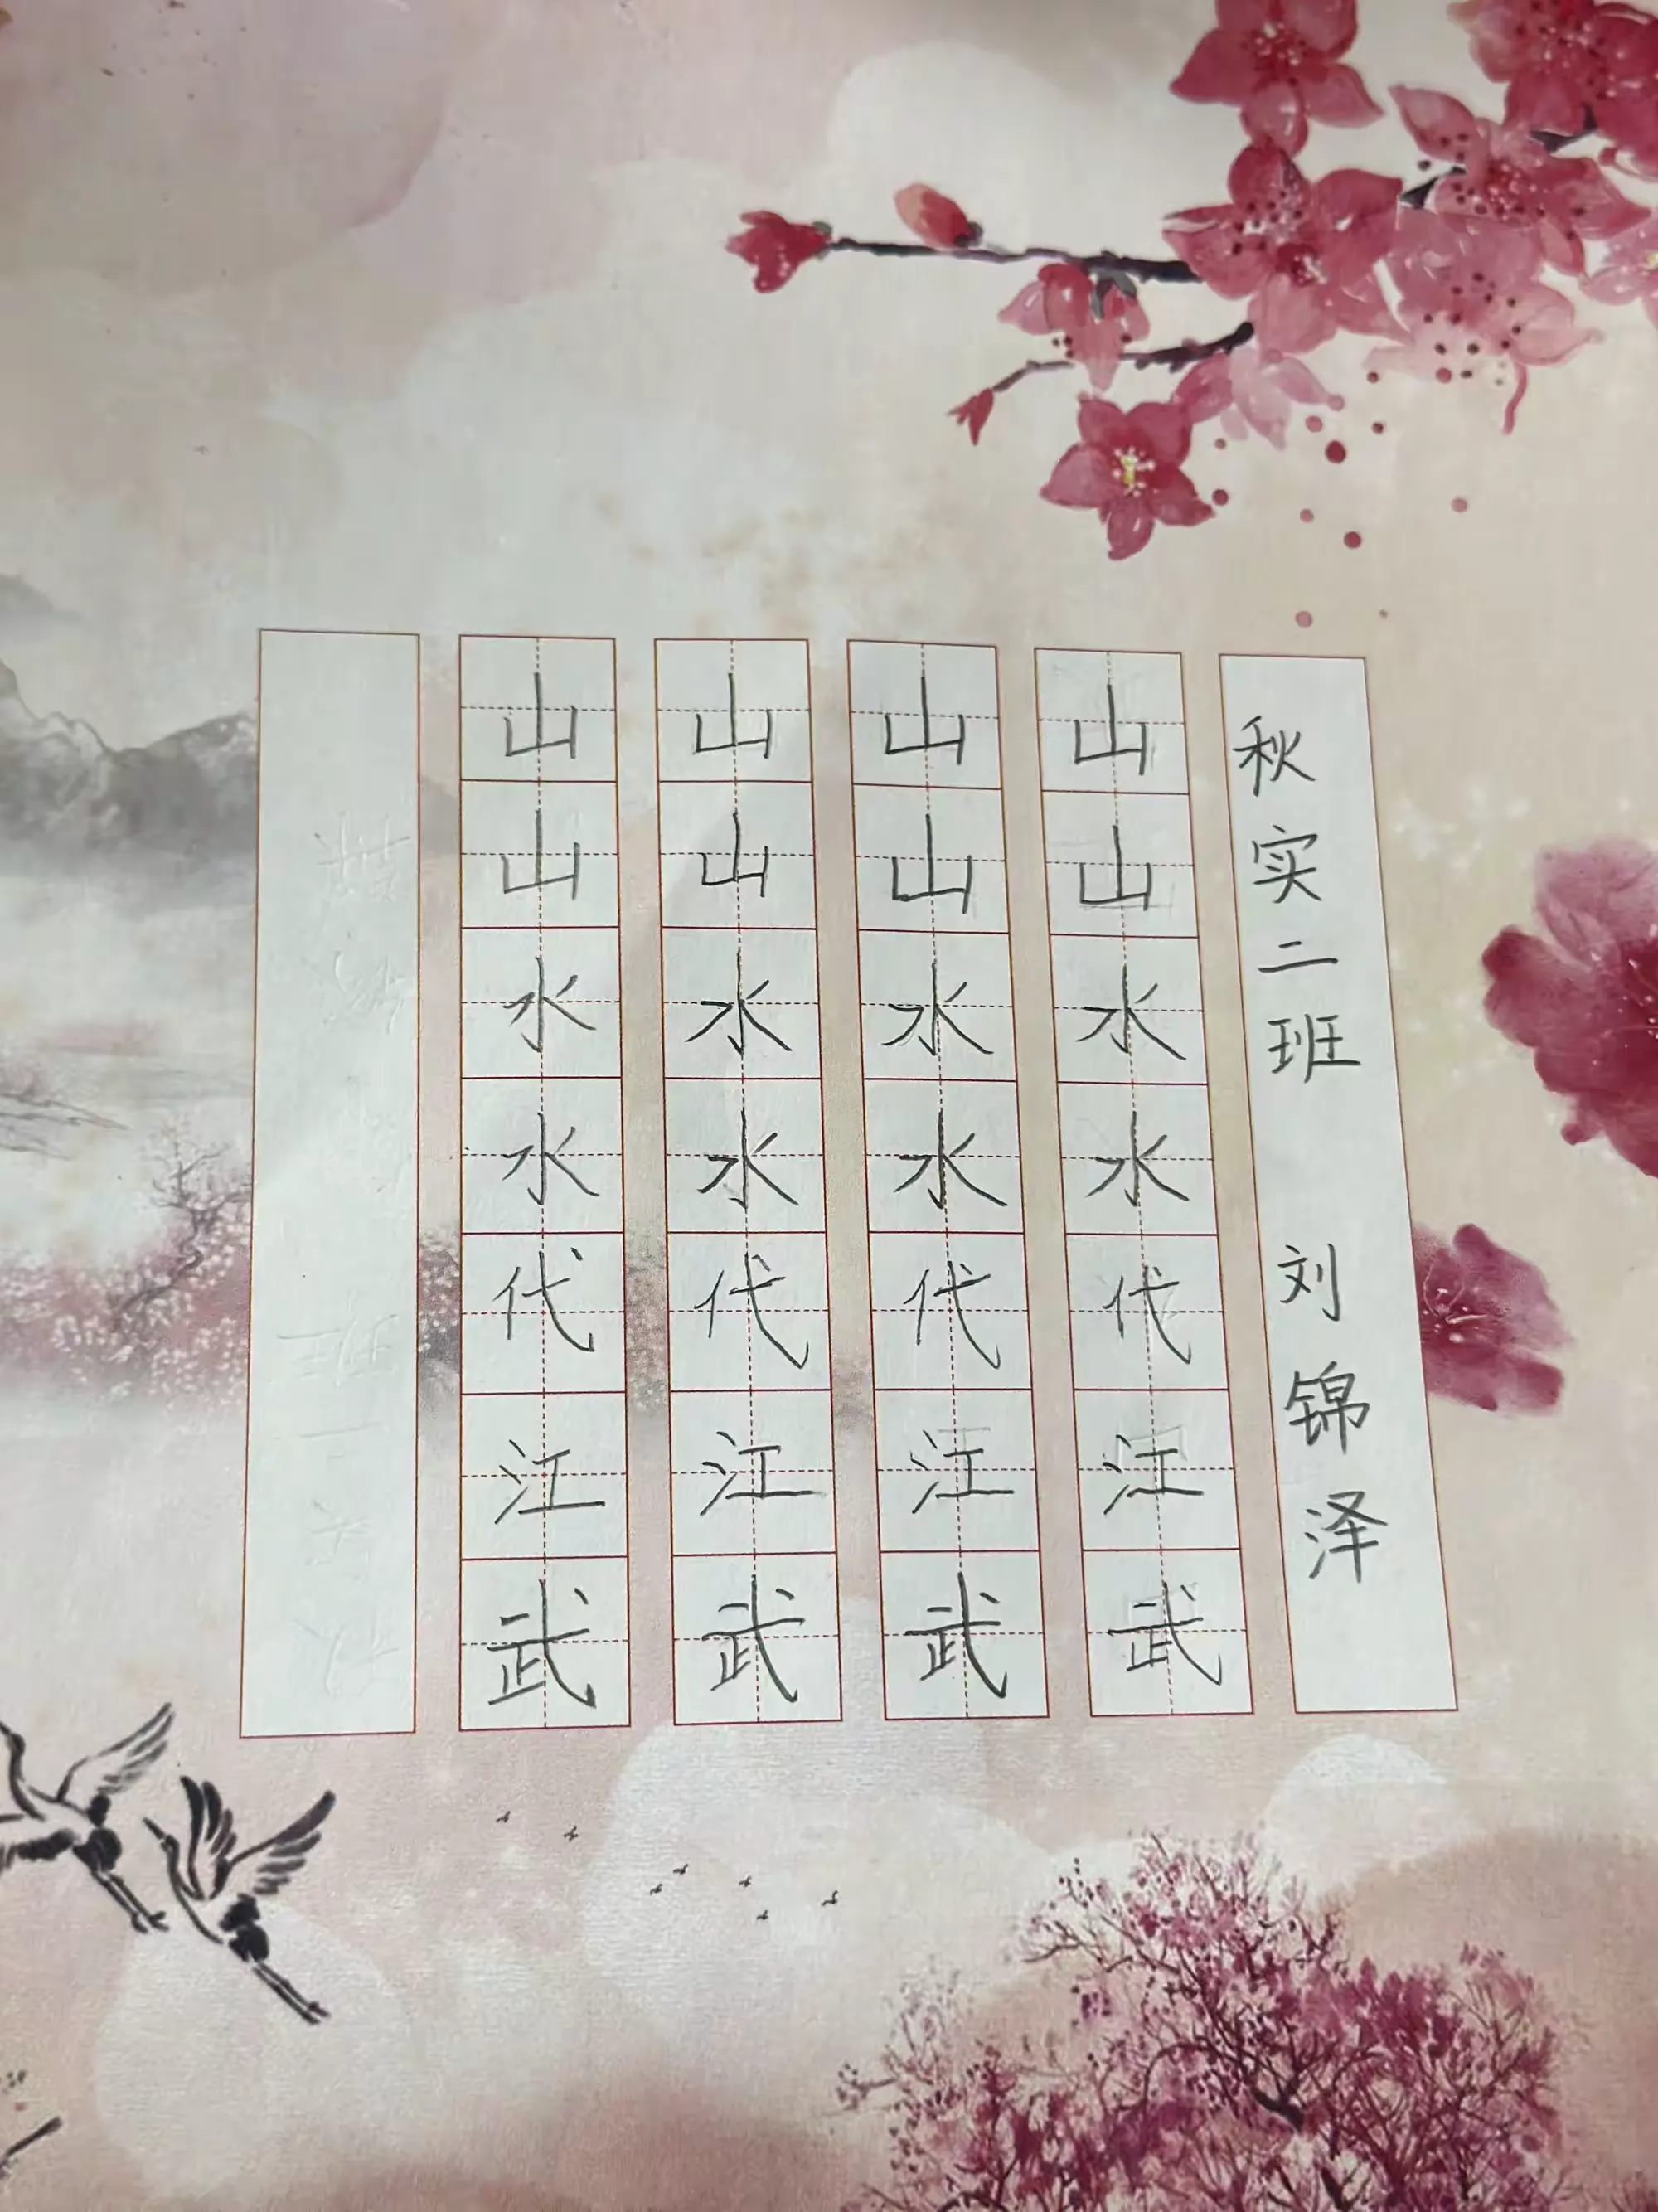 秋实二班 刘锦泽
山山水水代江武
山山水水代江武
山山水水代江武
山山水水代江武